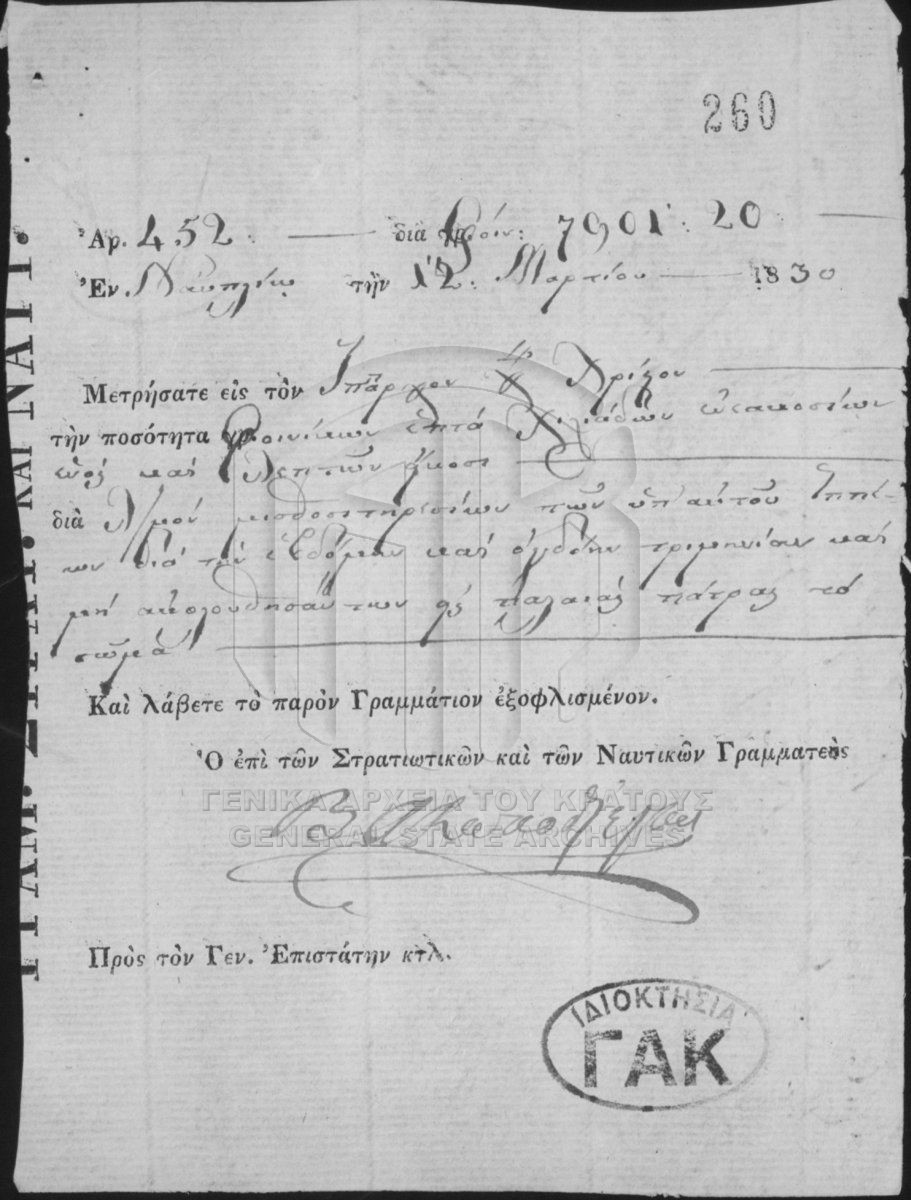 260
Ἀρ. 452 διὰ Φοίν: 7901: 20
Ἐν Ναυπλίῳ τὴν 12. Μαρτίου 1830
Μετρήσατε εἰς τὸν Ἵππαρχον
τὴν ποσότητα Φοινίκων ἑπτὰ χιλιάδων ἐνακοσίων
ἑνὸς καὶ λεπτῶν εἴκοσι
διὰ μισθοσιτηρεσίων τῶν ὑπ' αὐτοῦ Ἱππέ-
ων διὰ τὴν ἑβδόμην καὶ ὀγδόην τριμηνίαν καὶ
μὴ ἀκολουθησάντων εἰς παλαιὰς πάτρας τὸ
σῶμα
Καὶ λάβετε τὸ παρὸν Γραμμάτιον ἐξοφλισμένον.
Ὁ ἐπὶ τῶν Στρατιωτικῶν καὶ τῶν Ναυτικῶν Γραμματεὺς
ΓΕΝΙΚΑ ΑΡΧΕΙΑ ΤΟΥ ΚΡΑΤΟΥΣ
GENERAL STATE ARCHIVES
Πρὸς τὸν Γεν. Ἐπιστάτην κτλ.
ΙΔΙΟΚΤΗΣΙΑ
ΓΑΚ